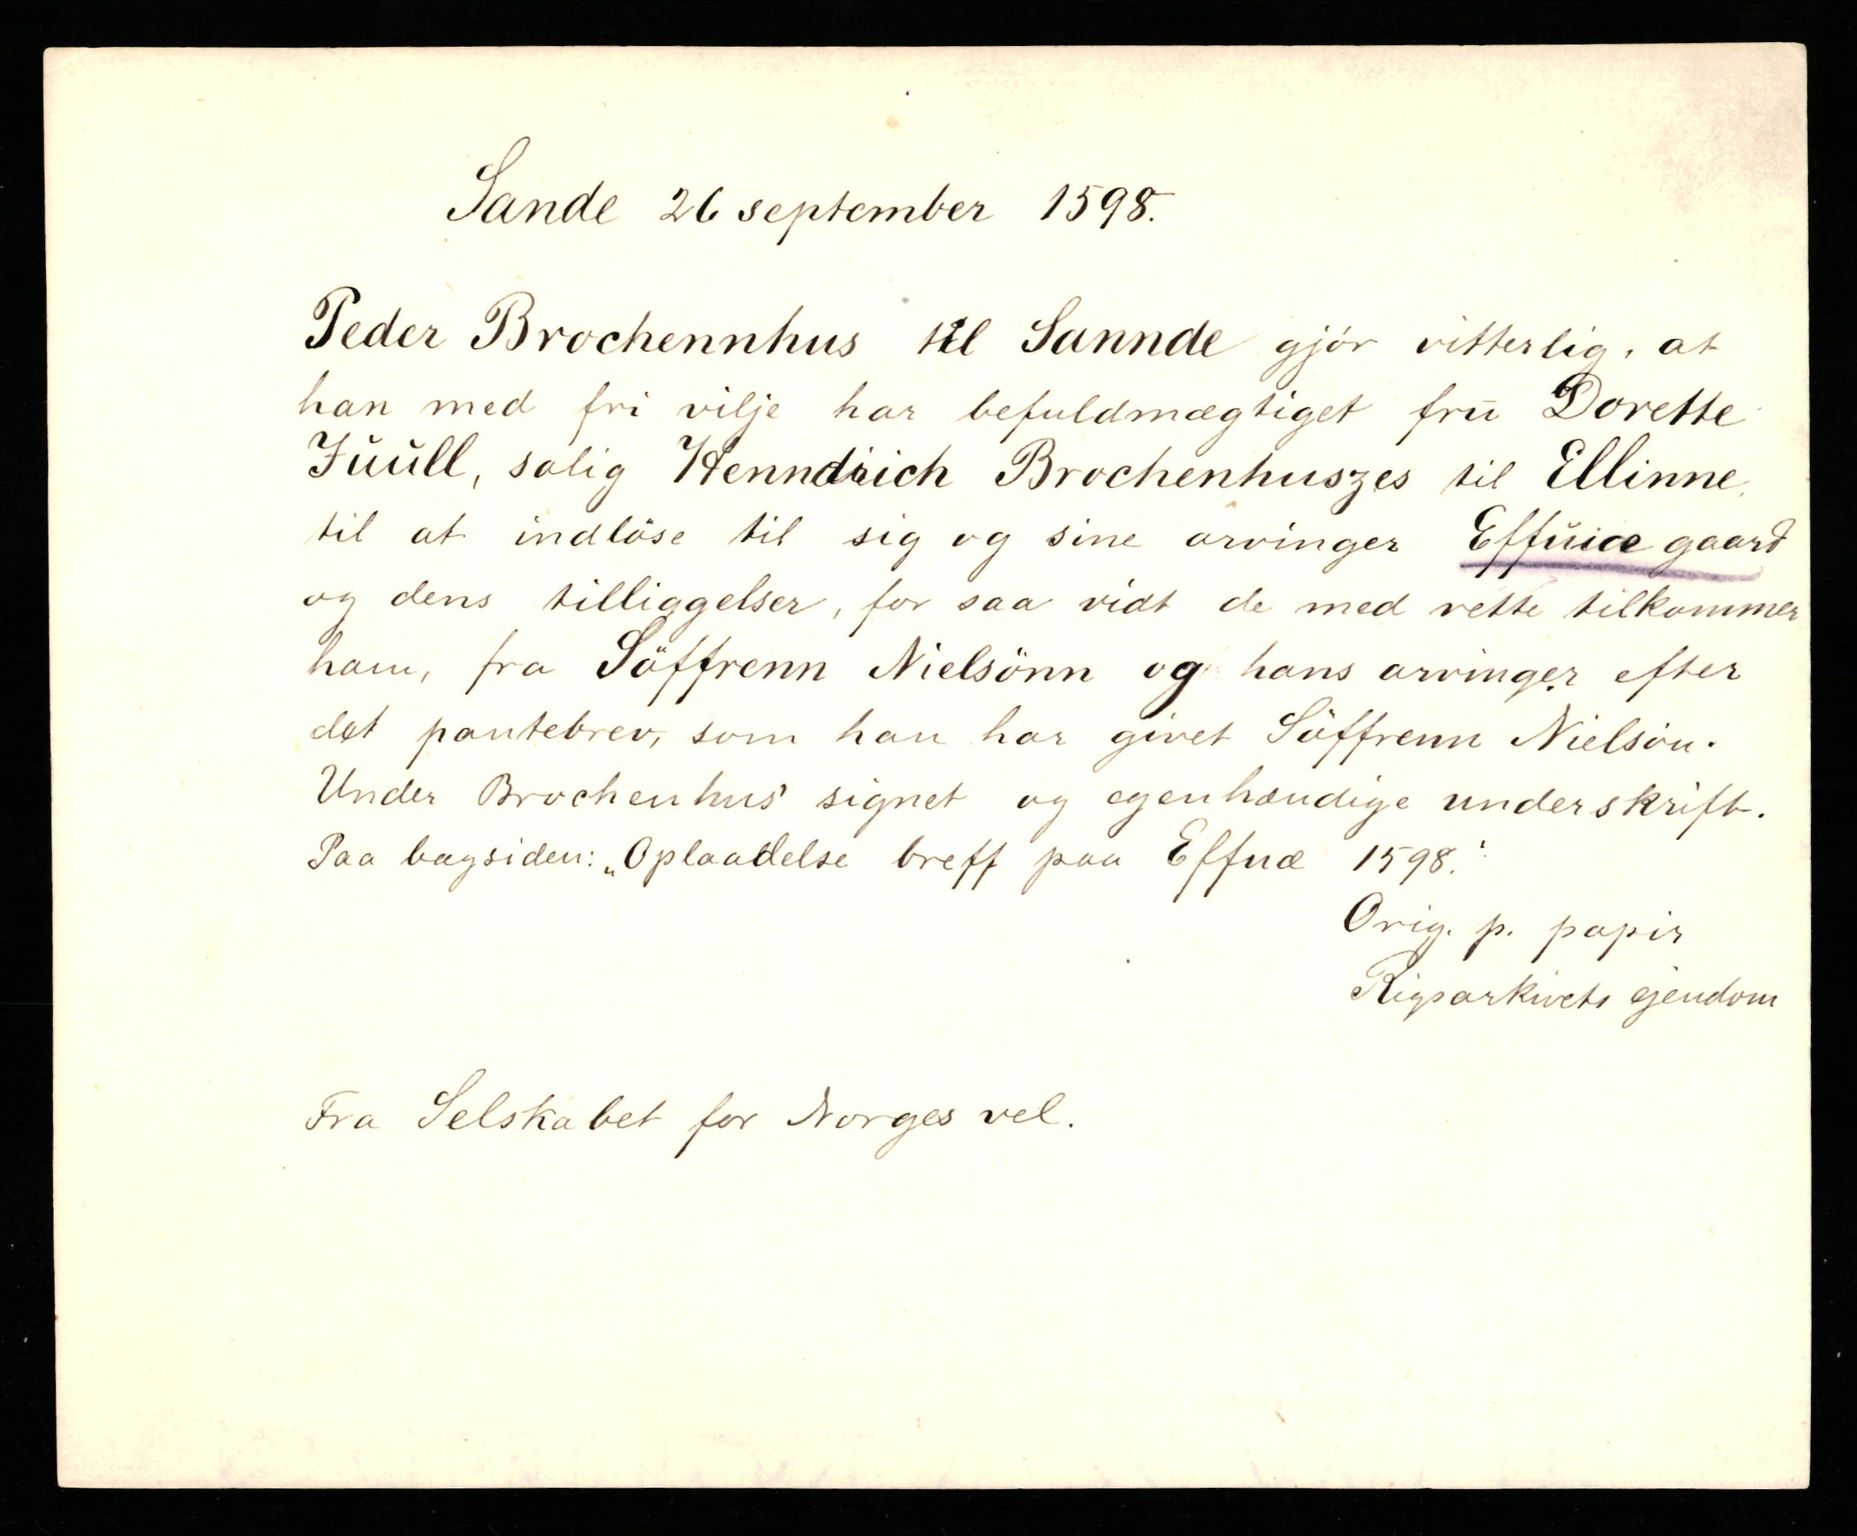 Sande 26 september 1598.
Peder Brochennhus til Sannde gjör vitterlig, at
han med fri vilje har befuldmægtiget frū Dorette
Jŭŭll, salig Henndrich Brochenhuszes til Ellinne,
til at indlöse til sig og sine arvinger Effŭiæ gaard
og dens tilliggelser, for saa vidt de med rette tilkommer
ham, fra Söffrenn Nielsönn og hans arvinger efter
det pantebrev, som han har givet Söffrenn Nielsön.
Under Brochenhus' signet og egenhændige underskrift.
Paa bagsiden: „Oplaadelse breff paa Effuæ 1598."
Orig. p. papir
Rigsarkivets ejendom
Fra Selskabet for Norges vel.